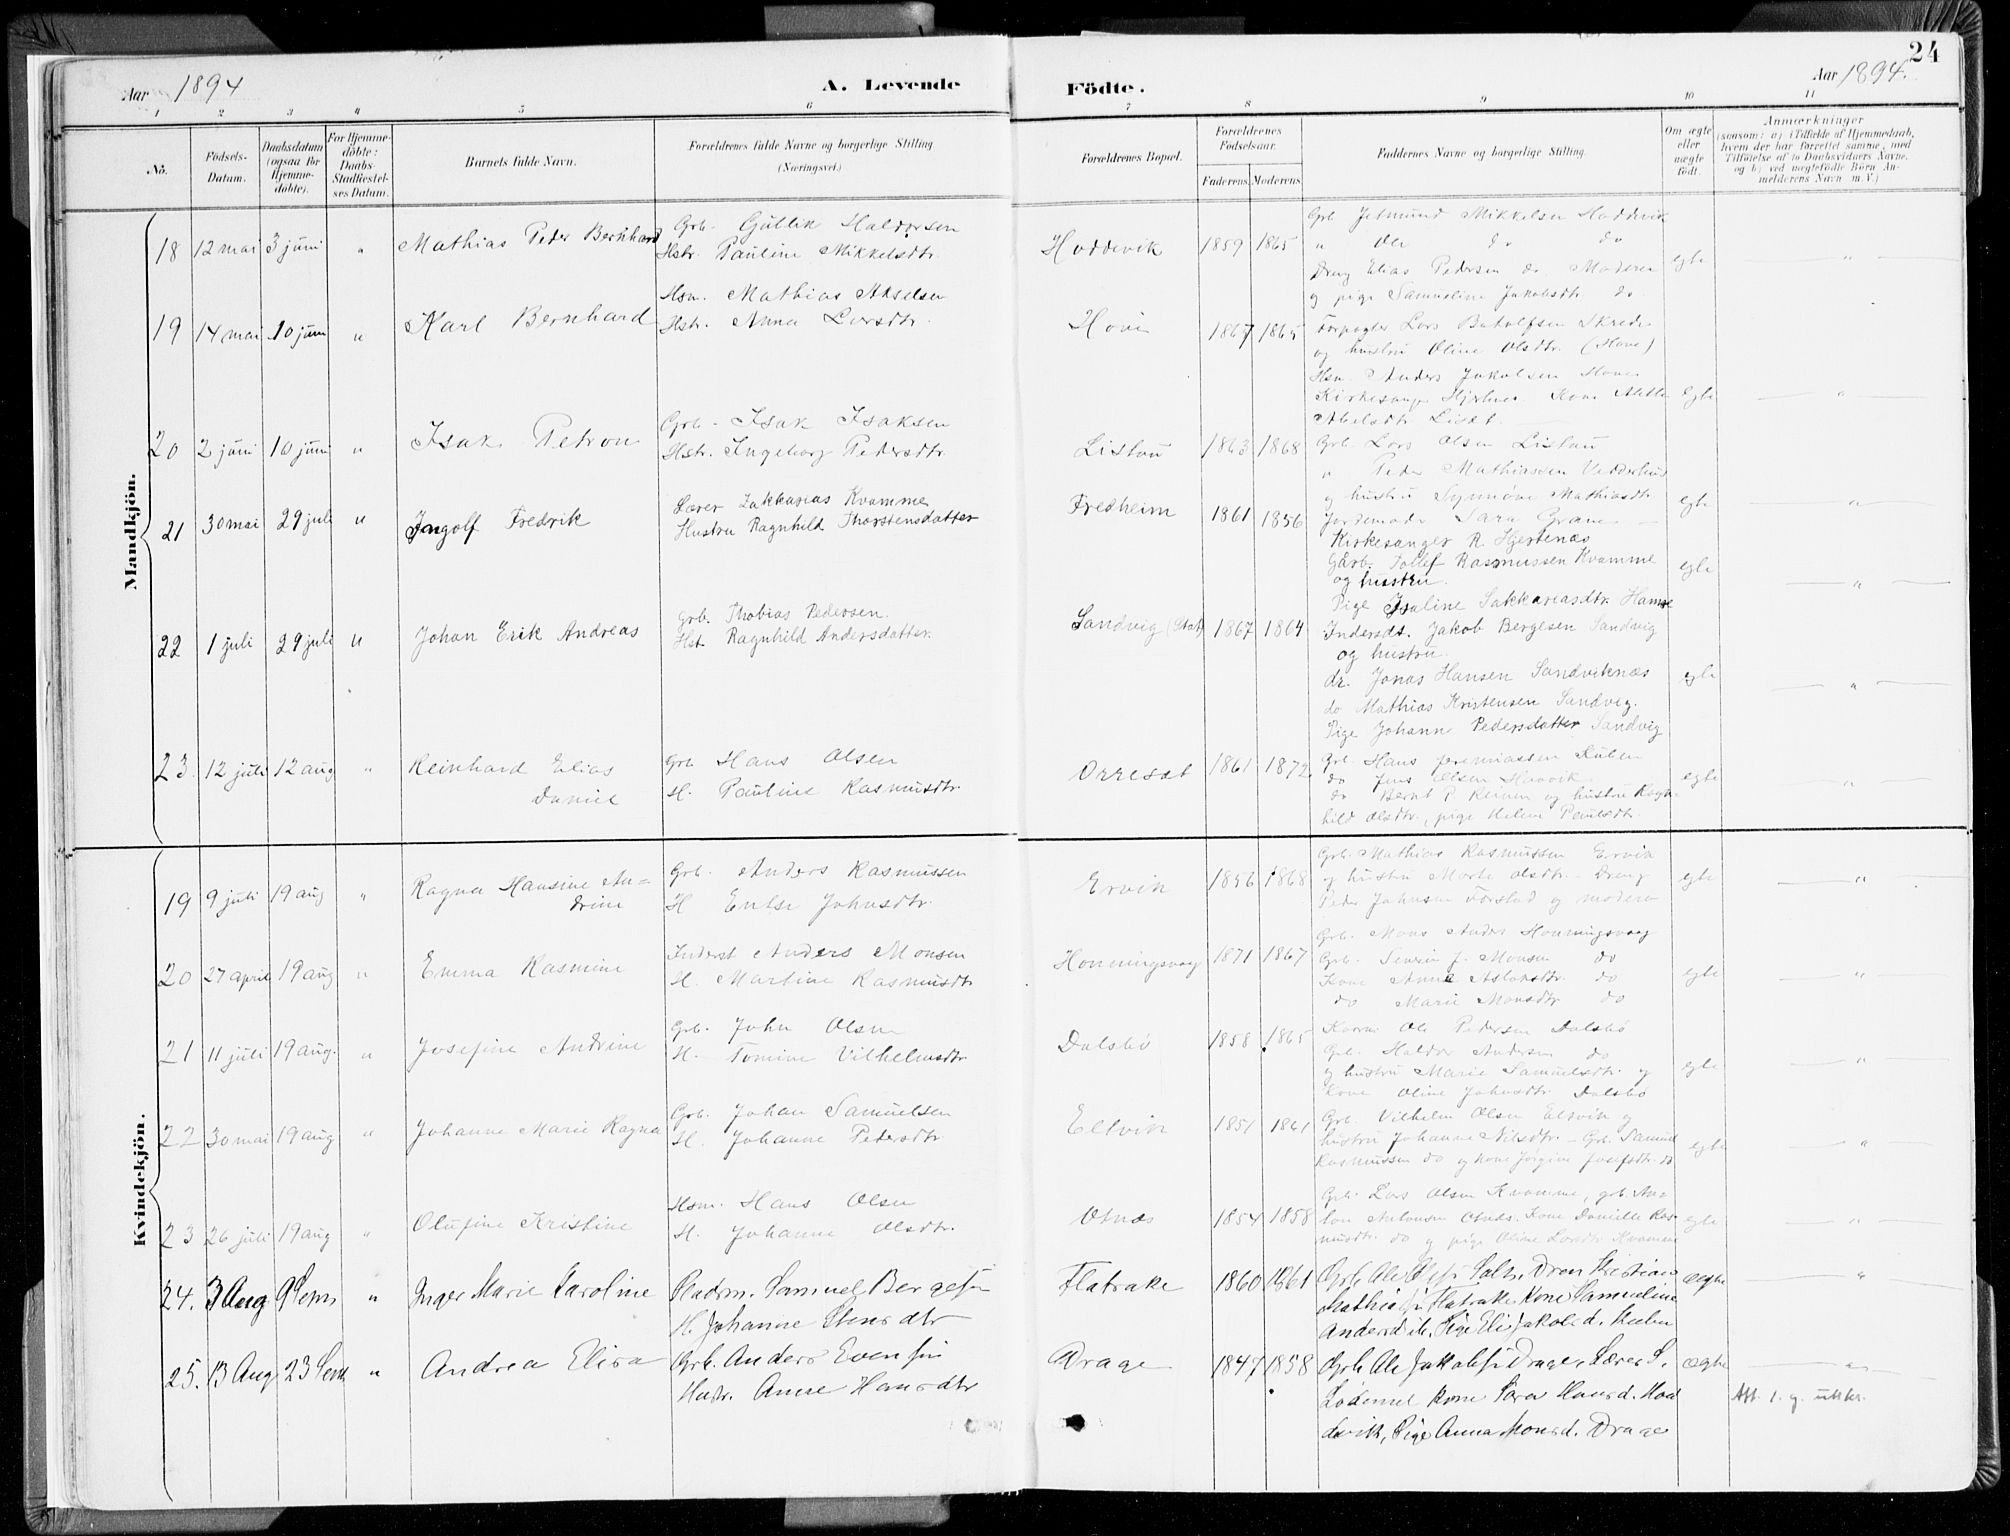 24
Aar 1894
A. Levende
Födte.
Aar 1894.
1 2 3 4 5 6 7 8 9 10 11
No.
Födsels-
Datum.
Daabsdatum
(ogsaa for
Hjemme-
döbte).
For Hjemme-
döbte:
Daabs-
Stadfæstel-
ses Datum.
Barnets fulde Navn.
Forældrenes fulde Navne og borgerlige Stilling
(Næringsvei.)
Forældrenes Bopæl.
Forældrenes
Födselsaar.
Faderens. Moderens.
Faddernes Navne og borgerlige Stilling.
Om ægte
eller
uægte
födt.
Anmærkninger
(saasom: a) i Tilfælde af Hjemmedaab,
hvem der har forrettet samme, med
Tilföielse af to Daabsvidners Navne,
og b) ved uægtefödte Börn An-
melderens Navn m. V.)
Mandkjön.
18 12 mai 3 juni " Mathias Peder Bernhard
Grb. Gullik Haldorsen
Hstr. Pauline Mikkelsdtr.
Hoddevik 1859 1865
Grb Jetmund Mikkelsen Hoddevik
" Ole do do
Dreng Elias Pedersen do. Moderen
og pige Samueline Jakobsdtr do
egte "
19 14 mai 10 juni " Karl Bernhard
Hsm. Mathias Akselsen
Hstr. Anna Larsdtr.
Hove 1867 1865
Forpagter Lars Batolfsen Skrede
og hustru Oline Olsdtr. (Hove)
Hsm. Anders Jakobsen Hove
Kirkesanger Kone
Abelsdtr
egte "
20 2 juni 10 juni " Isak Petron
Grb. Isak Isaksen
Hstr. Ingeborg Pedersdtr
Listau 1863 1868
Grb. Lars Olsen Listau
" Peder Mathiassen
og hustru Synnöve Mathiasdtr
Jordemoder Sara Grane
egte "
21 30 mai 29 juli " Ingolf Fredrik
Lærer Zakkarias Kvamme
Hustru Ragnhild Thorstensdatter
Fredheim 1861 1856
Kirkesanger R. Hjertenæs
Garb. Tollef Rasmussen Kvamme
og hustru.
Pige Isaline Sakkariasdtr.
egte "
22 1 juli 29 juli " Johan Erik Andreas
Grb. Thobias Pedersen.
Hst. Ragnhild Andersdatter.
Sandvig (Stat) 1867 1864
Indersdt. Jakob Bergesen Sandvig
og hustru.
do. Jonas Hansen Sandviknæs
do Mathias Kristensen Sandvig.
Pige Johanne Pedersdatter Sandvig
egte "
23 12 juli 12 aug " Reinhard Elias
Daniel
Grb Hans Olsen
H. Pauline Rasmusdtr.
Orresæt 1861 1872
Grb. Hans Jeremiassen
do Jens Olsen Haavik
do Bernt P. og hustru Ragn-
hild Olsdtr., pige Helene
egte "
Kvindekjön.
19 9 juli 19 aug " Ragna Hansine An=
drine
Grb. Anders Rasmussen
H Johnsdtr.
Ervik 1856 1868
Grb. Mathias Rasmussen Ervik
og hustru Marte Olsdtr. Dreng
Peder Johnsen og moderen
egte "
20 27 april 19 aug " Emma Rasmine
Inderst Anders Monsen
H. Martine Rasmusdtr
Honningsvaag 1871 1867
Grb. Mons Anders Honningsvaag
Grb. Severin J. Monsen do
Kone Anne Aslaksdtr. do
do Marie Monsdtr do
egte "
21 11 juli 19 aug. " Josefine Andrine
Grb. John Olsen
H. Tomine Vilhelmsdtr
Dalsbö 1858 1865
Ole Pedersen Dalsbö
Grb. Haldor Andersen do
og hustru Marie Samuelsdtr. og
Kone Oline Johnsdtr. Dalsbö
egte "
22 30 mai 19 aug " Johanne Marie Ragna
Grb. Johan Samuelsen
H. Johanne Pedersdtr
Eltvik 1851 1861
Grb. Vilhelm Olsen Eltvik og
hustru Johanne Nilsdtr. - Grb. Samuel
Rasmussen do og kone Jörgine Josefsdtr. do
egte "
23 26 juli 19 aug " Olufine Kristine
Hsm. Hans Olsen
H. Johanne Olsdtr.
Otnæs 1854 1858
Grb. Lars Olsen Kvamme, grb. An=
ton Antonsen Otnæs. Kone Danielle Ras=
musdtr. do og pige Oline Larsdtr Kvamme
egte "
24. 3 Aug 9 Sem " Inger Marie Karoline
Pladsm. Samuel Bergesen
H. Johanne Stensdtr
Flatrake 1860 1861
Grb Ole Kristian
Mathiasen Flatrake, Kone Samueline
Andersdtr, Pige Eli Jakobsd.
ægte "
25. 13 Aug 23 Sem " Andrea Elisa
Grb. Anders Evensen
Hustr. Anne Hansdtr
Drage 1847 1858
Grb Ole Jakobsen Drage, Lærer S.
Lödemel Kone Sara Hansd. Hod
devik, Pige Anna Monsd. Drage
ægte "
Att. 1. g. utskr.